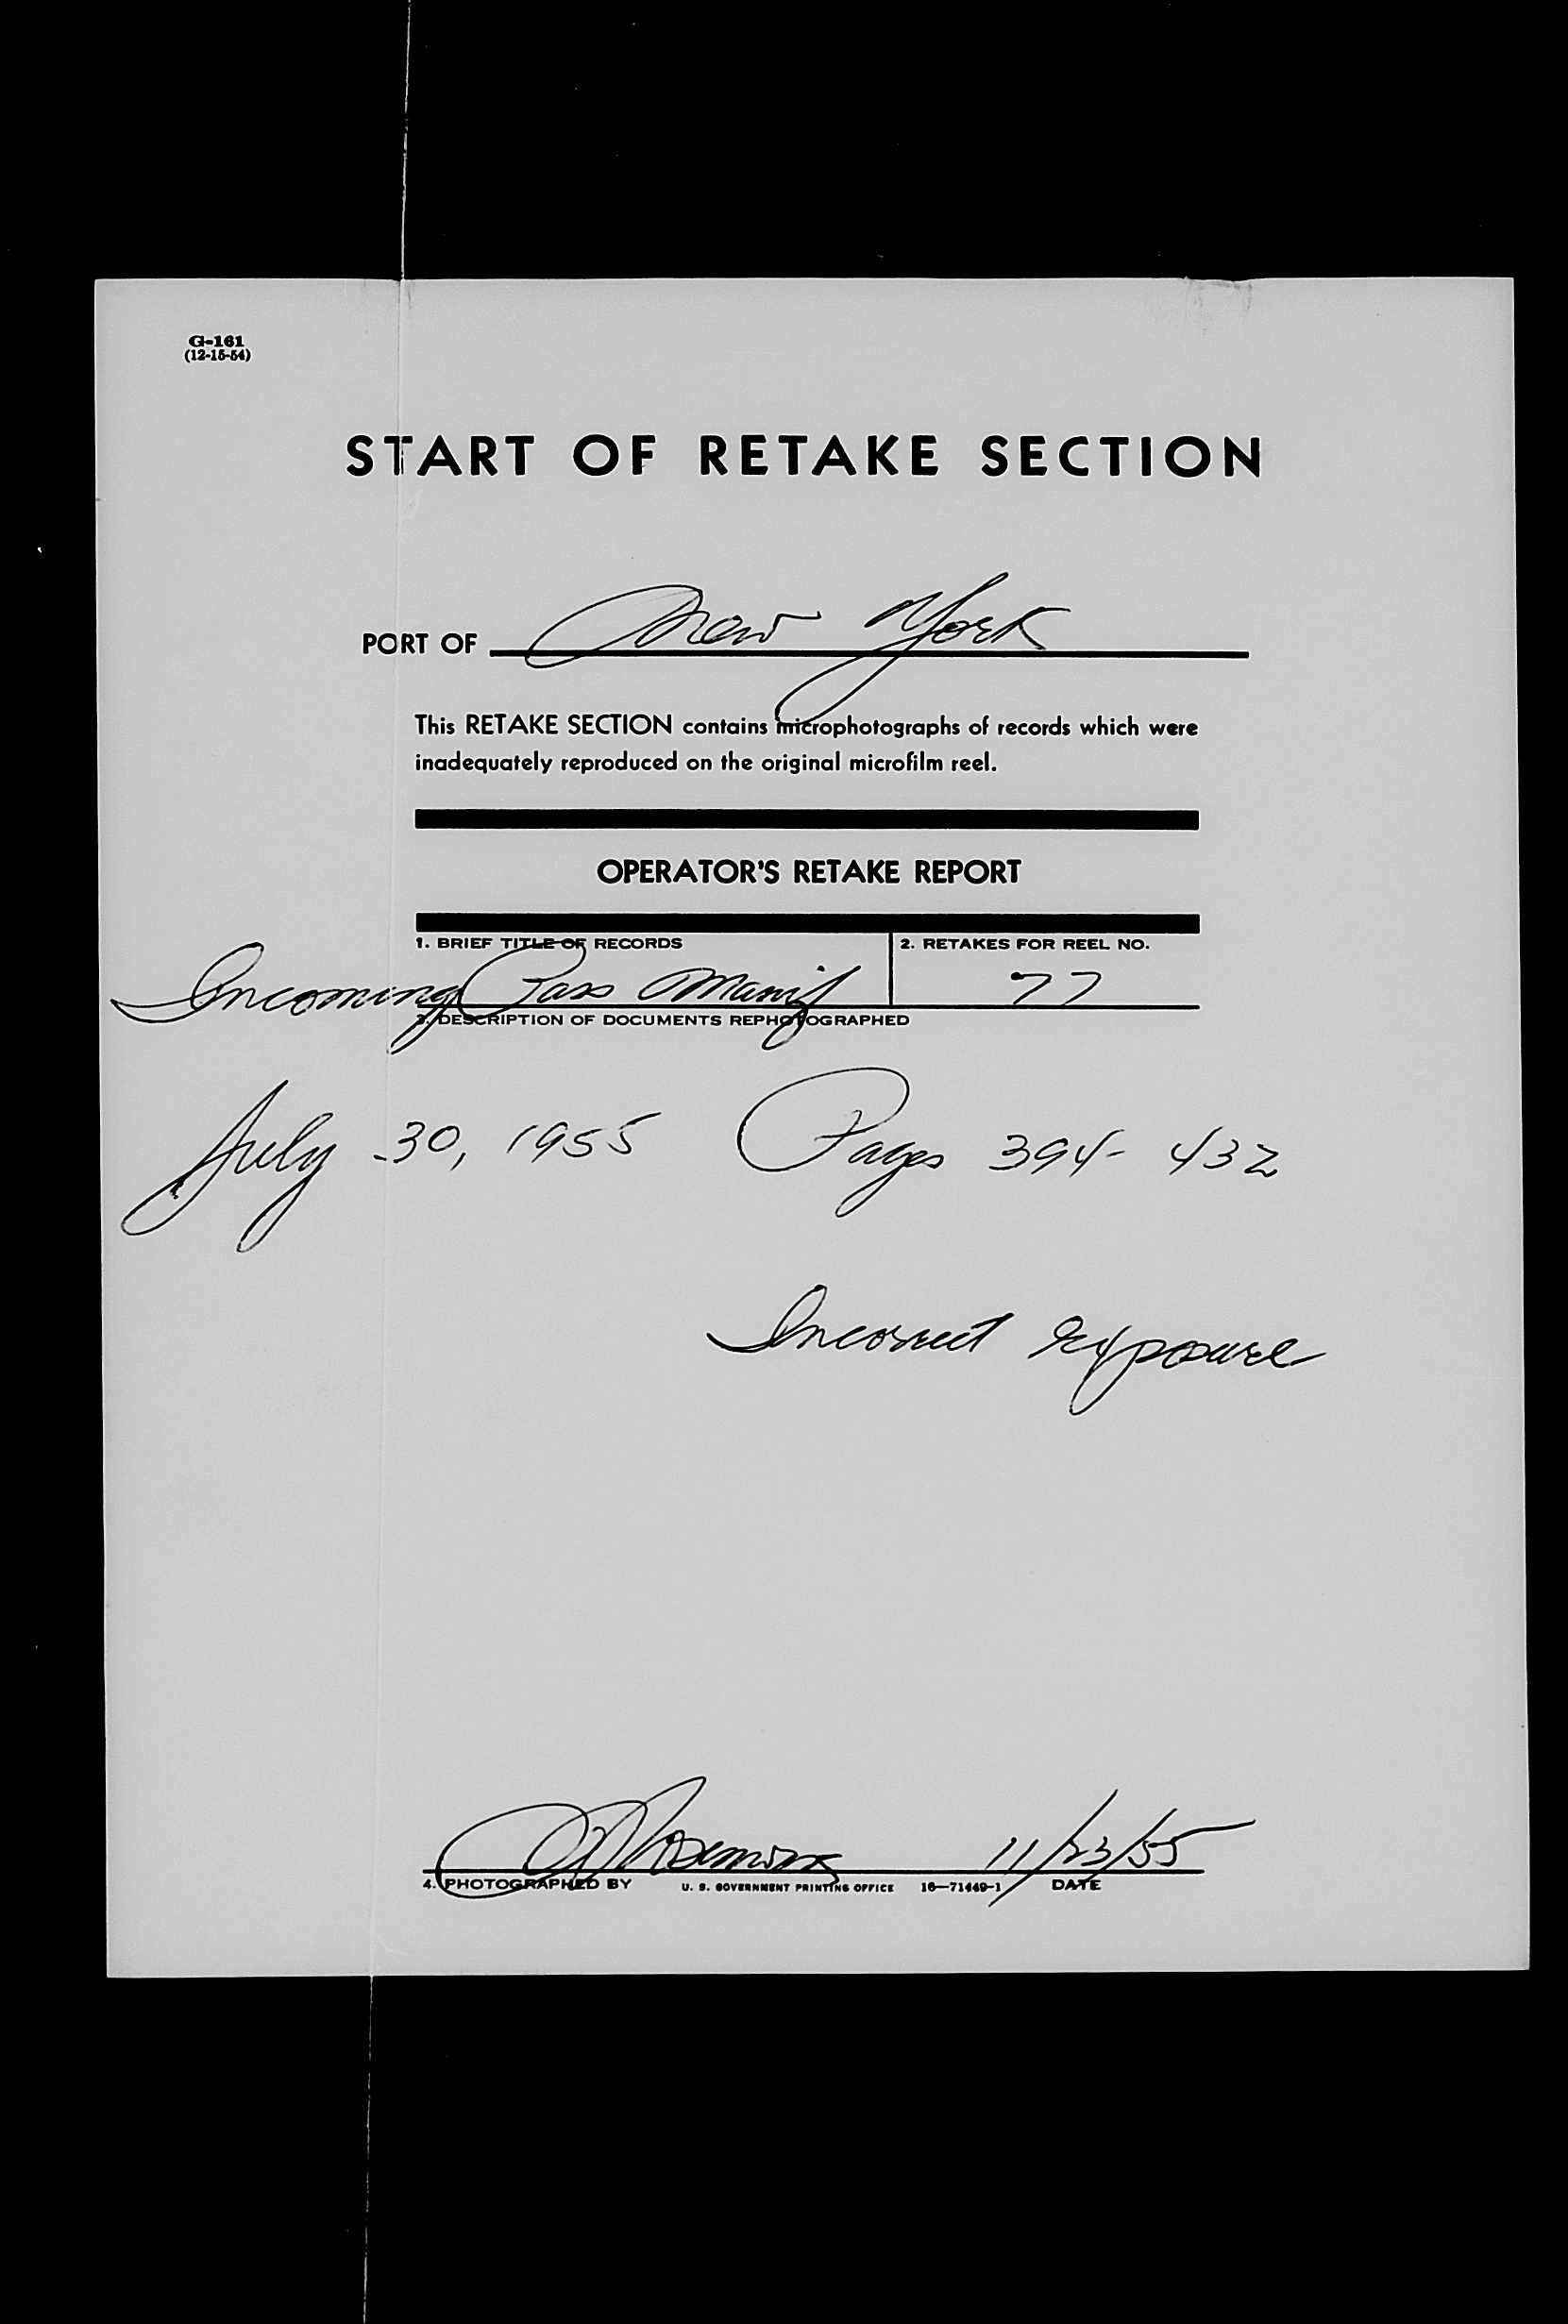 G-161
(12-15-54)
START OF RETAKE SECTION
PORT OF New York
This RETAKE SECTION contains microphotographs of records which were
inadequately reproduced on the original microfilm reel.
OPERATOR'S RETAKE REPORT
1. BRIEF TITLE OF RECORDS 2. RETAKES FOR REEL NO.
Incoming Pass Manif 77
3. DESCRIPTION OF DOCUMENTS REPHOTOGRAPHED
July 30, 1955 Pages 394- 432
Incorrect Exposure
11/23/55
4. PHOTOGRAPHED BY U. S. GOVERNMENT PRINTING OFFICE 16—71449-1 DATE